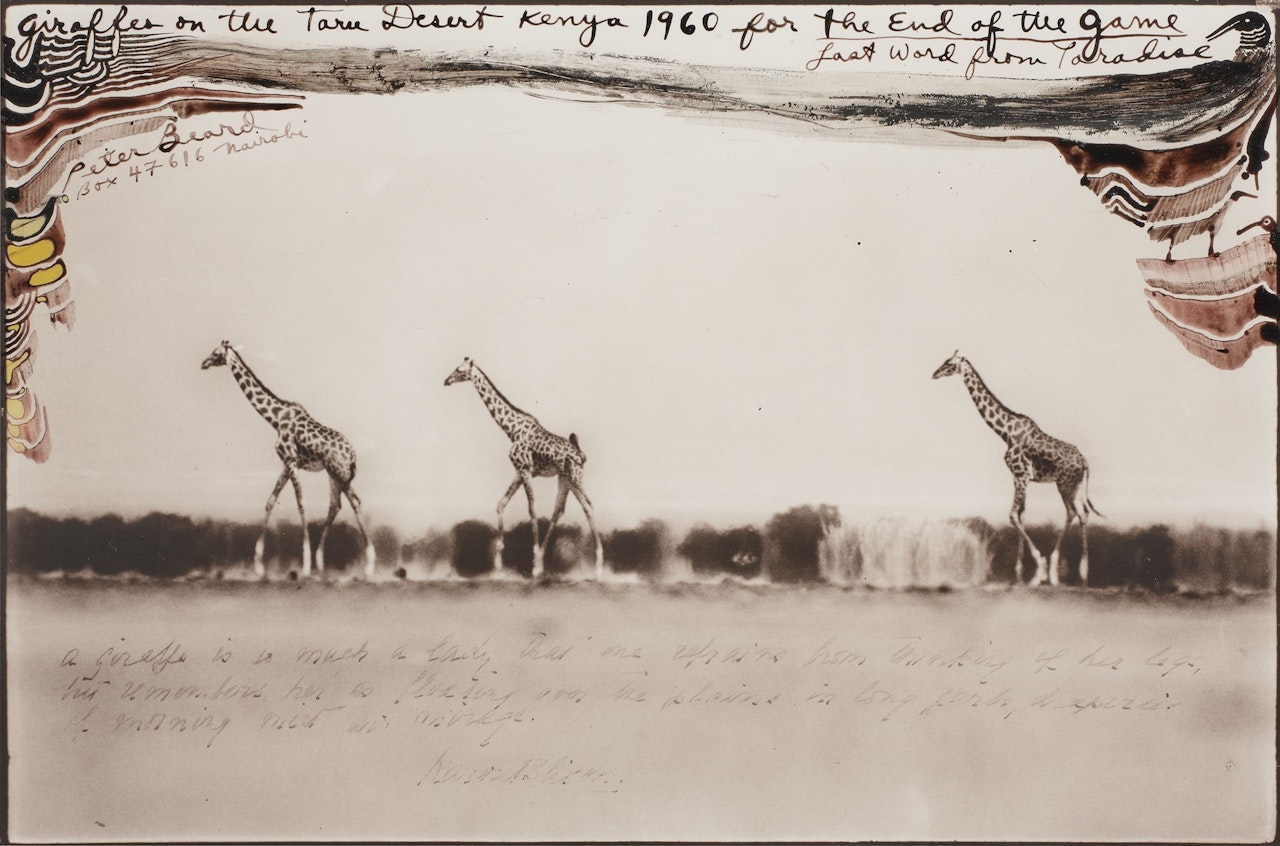 giraffes on the Taru Desert Kenya 1960 for the End of the Game
Last Word from Paradise
Peter Beard
Box 47616 Nairobi
a giraffe is so much a lady that one refrains from thinking of her legs,
but remembers her as floating over the plains in long garbs, draperies
of morning mist or mirage.
Karen Blixen.